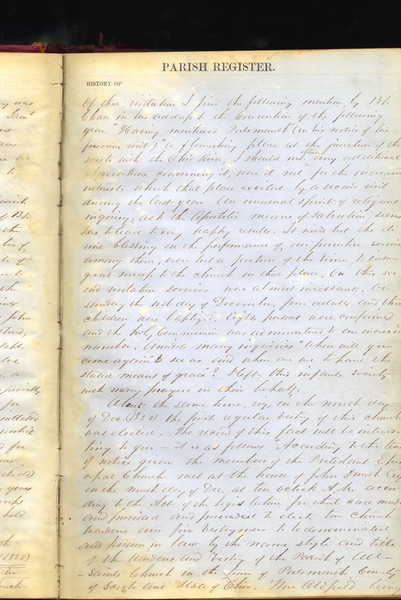 PARISH REGISTER.
HISTORY OF
Of this visitation I find the following mention, by Bp.
Chase in his address to the Convention of the following
year. "Having mentioned Portsmouth (in the notice of his
previous visit) "a flourishing place at the junction of the
Scioto with the Ohio river, I should not any additional
observations concerning it, were it not for the increasing
interests which that place excited by a second visit
during the last year. An unusual spirit of religious
inquiry, as to the Apostolic means of salvation, seems
to lead to very happy results. It needs but the di-
vine blessing on the performance of our primitive service
among them, even but a portion of the time, to insure
great success to the church in that place. On this se-
cond visitation services were almost incessant. On
Sunday the 2nd day of December, five adults and three
children were baptized. Eight persons were confirmed
and the Holy Communion administered to an increased
number, amidst many inquiries "When will you
come again to see us and when are we to have the
stated means of grace? I left this infant society
with many prayers in their behalf.
About the same time, viz, on the ninth day
of Dec. the first regular vestry of this church
was elected. The record of this fact will be interes-
ting to you. It is as follows. According to the tenor
of notice given the members of the Protestant Epis-
copal Church met at the house of John Smith Esq.
on the ninth day of Dec. at ten o'clock A.M. accor-
ding to the Act of the Legislature for that case made
and provided and proceeded to elect two Church
Wardens and five Vestrymen to be denominated
and known in law by the name style and title
of the Wardens and Vestry of the Parish of All-
Saints Church in the Town of Portsmouth County
of Scioto and State of Ohio. Wm Oldfield being